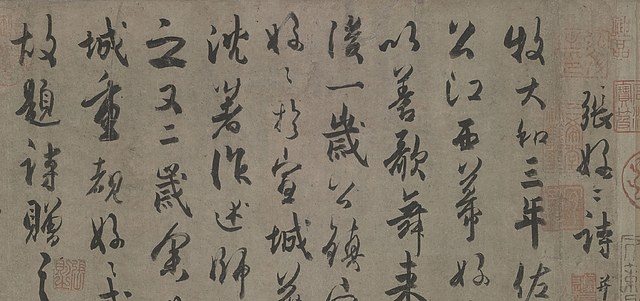 張好〻詩并
牧大和三年佐
公江西幕好
以善歌舞来
後一歲公鎮
好〻於宣城
沈著作述師
之又二歲余
城重覩好〻
故題詩贈之